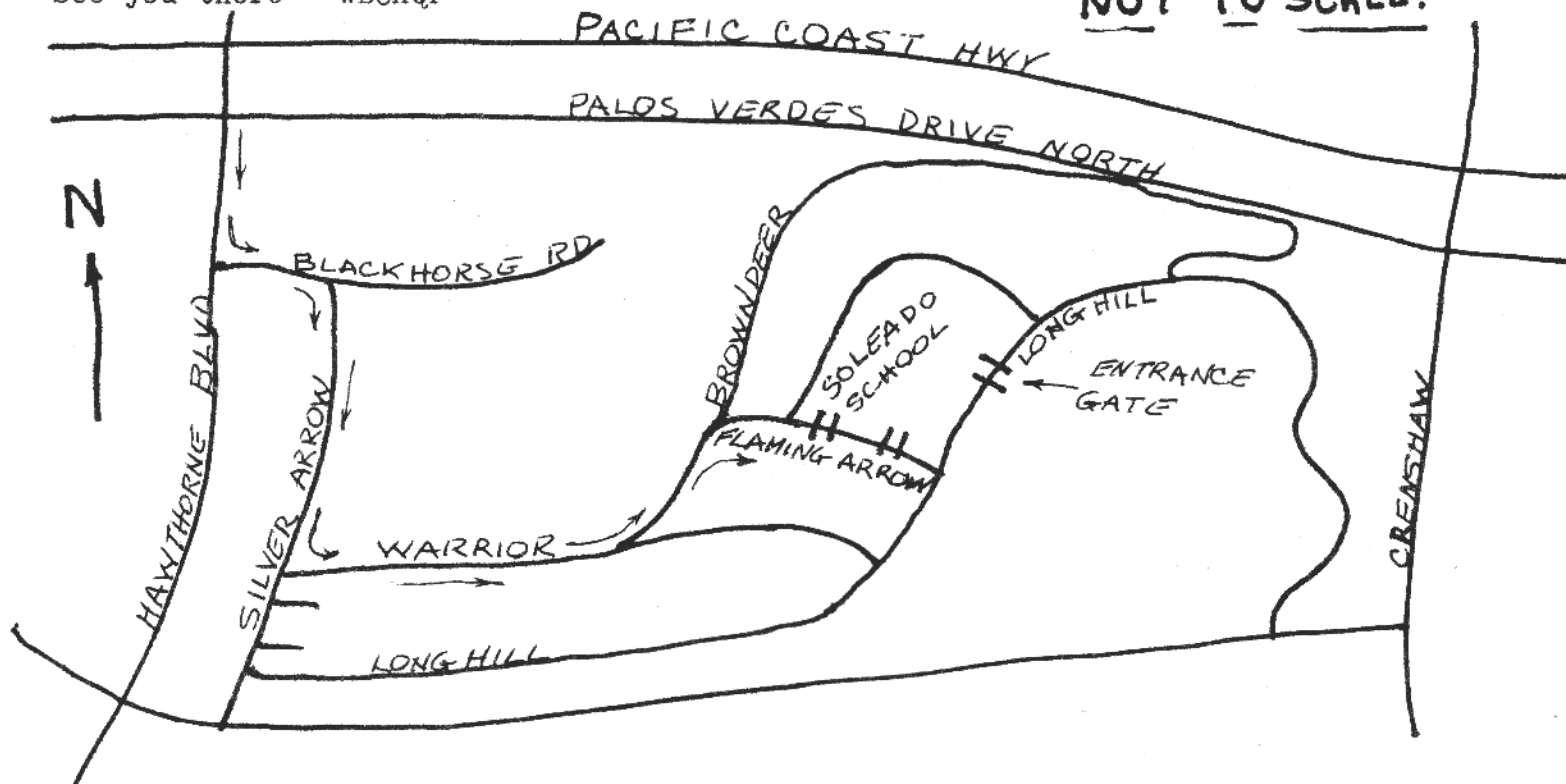 See you there
NOT TO SCALE!
PACIFIC COAST HWY
PALOS VERDES DRIVE NORTH
N
BLACKHORSE RD
HAWTHORNE BLVD
SILVER ARROW
BROWNDEER
SOLEADO
SCHOOL
LONGHILL
ENTRANCE
GATE
FLAMING ARROW
WARRIOR
CRENSHAW
LONGHILL